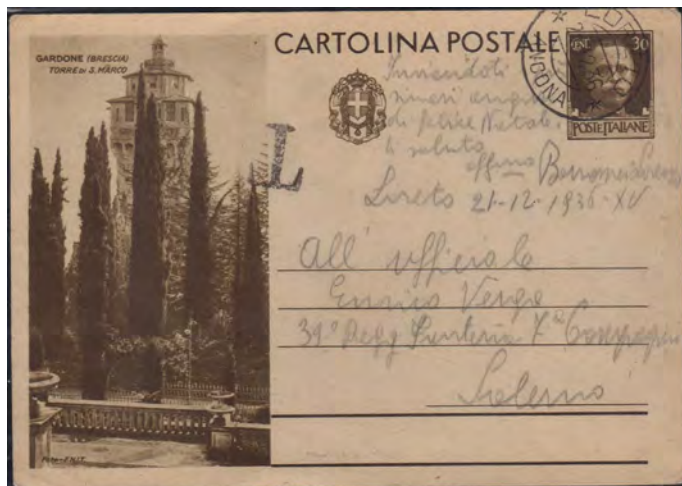 GARDONE (BRESCIA)
TORRE DI S. MARCO
CARTOLINA POSTALE
CENT. 30
POSTE ITALIANE
ANCONA
Inviandoti
sinceri auguri
di felice Natale.
ti saluto
Loreto 21-12-1936-XV
All' ufficiale
Enrico Verga
39° Regg Fanteria 7ª Compagnia
Salerno
Foto-ENIT